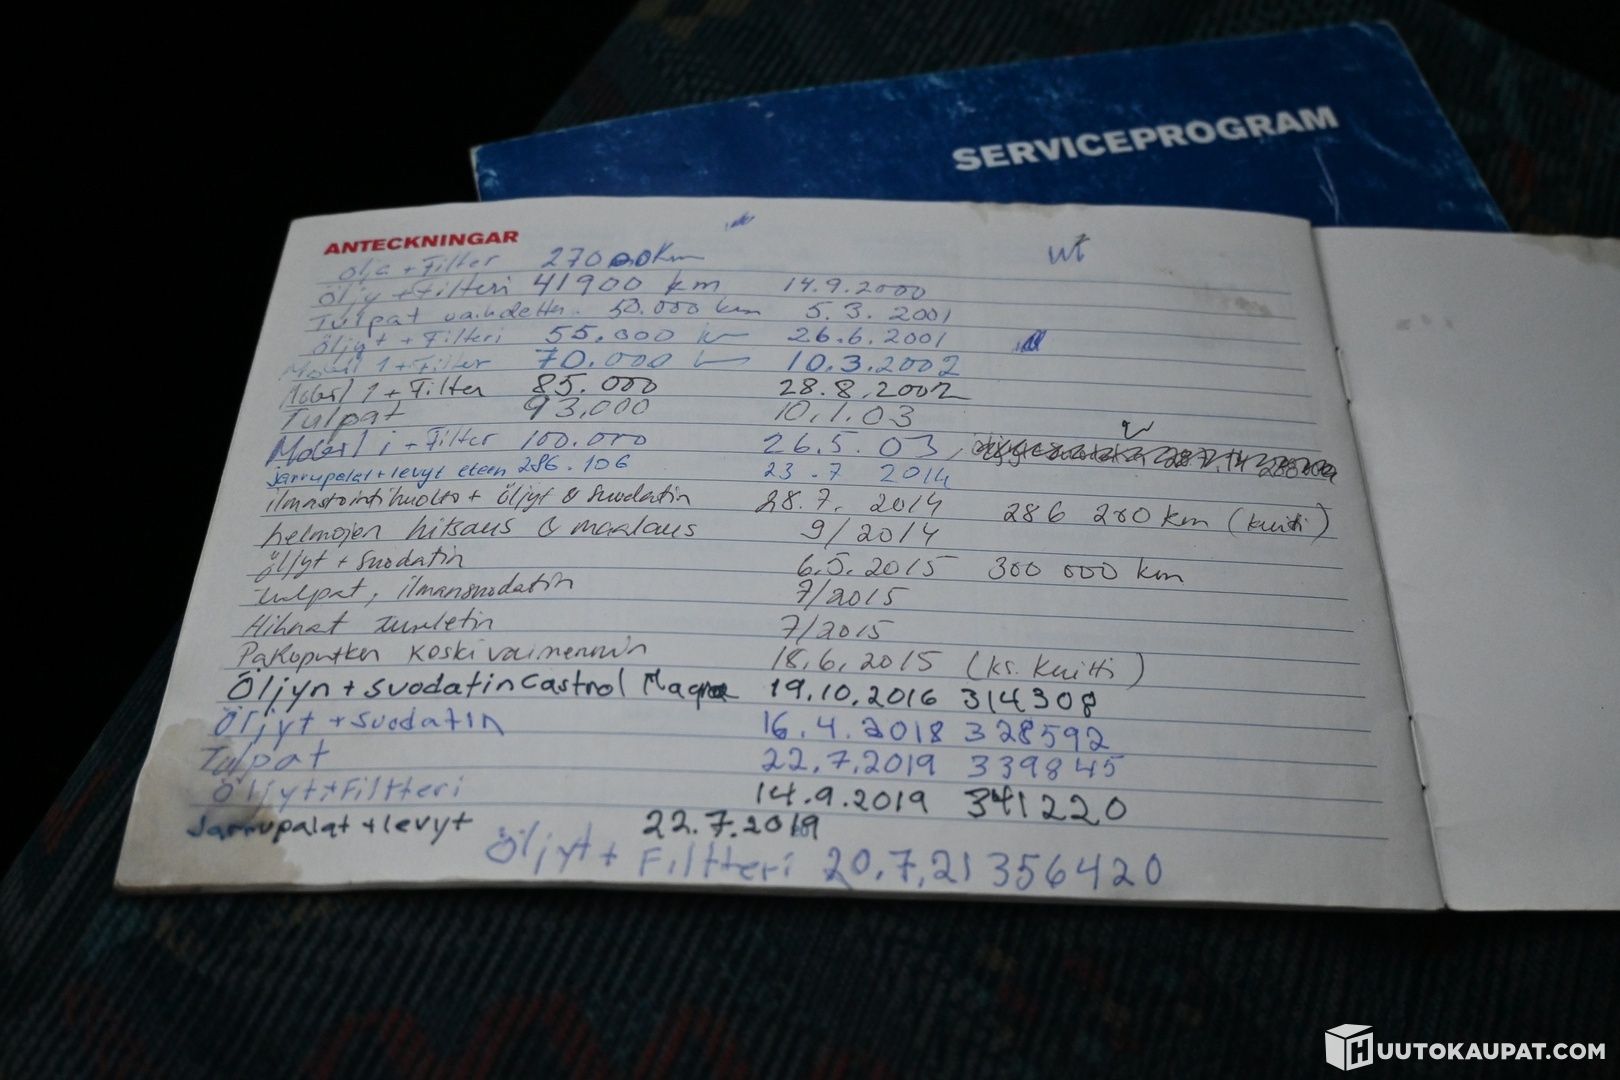 SERVICEPROGRAM
ANTECKNINGAR
Olja + Filter 27000km
Öljy + Filteri 41900 km 14.9.2000
Tulpat vaihdettu. 50.000 km 5.3.2001
Öljyt + Filteri 55.000 26.6.2001
Mobil 1 + Filter 70.000 10.3.2002
Mobil 1 + Filter 85.000 28.8.2002
Tulpat 93,000 10.1.03
Mobil 1 + Filter 100.000 26.5.03
jarrupalat + levyt eteen 286.106 23.7 2014
ilmastointihuolto + öljyt & suodatin 28.7. 2014 286 200 km (kuitti)
helmojen hitsaus & maalaus 9/2014
öljyt + suodatin 6.5.2015 300 000 km
tulpat, ilmansuodatin 7/2015
Hihnat 7/2015
Pakoputken 18.6.2015 (ks. kuitti)
Öljyn + suodatin Castrol 19.10.2016 314308
Öljyt + suodatin 16.4.2018 328592
Tulpat 22.7.2019 339845
Öljyt + Filtteri 14.9.2019 341220
Jarrupalat + levyt 22.7.2019
Öljyt + Filtteri 20.7.21 356420
HUUTOKAUPAT.COM